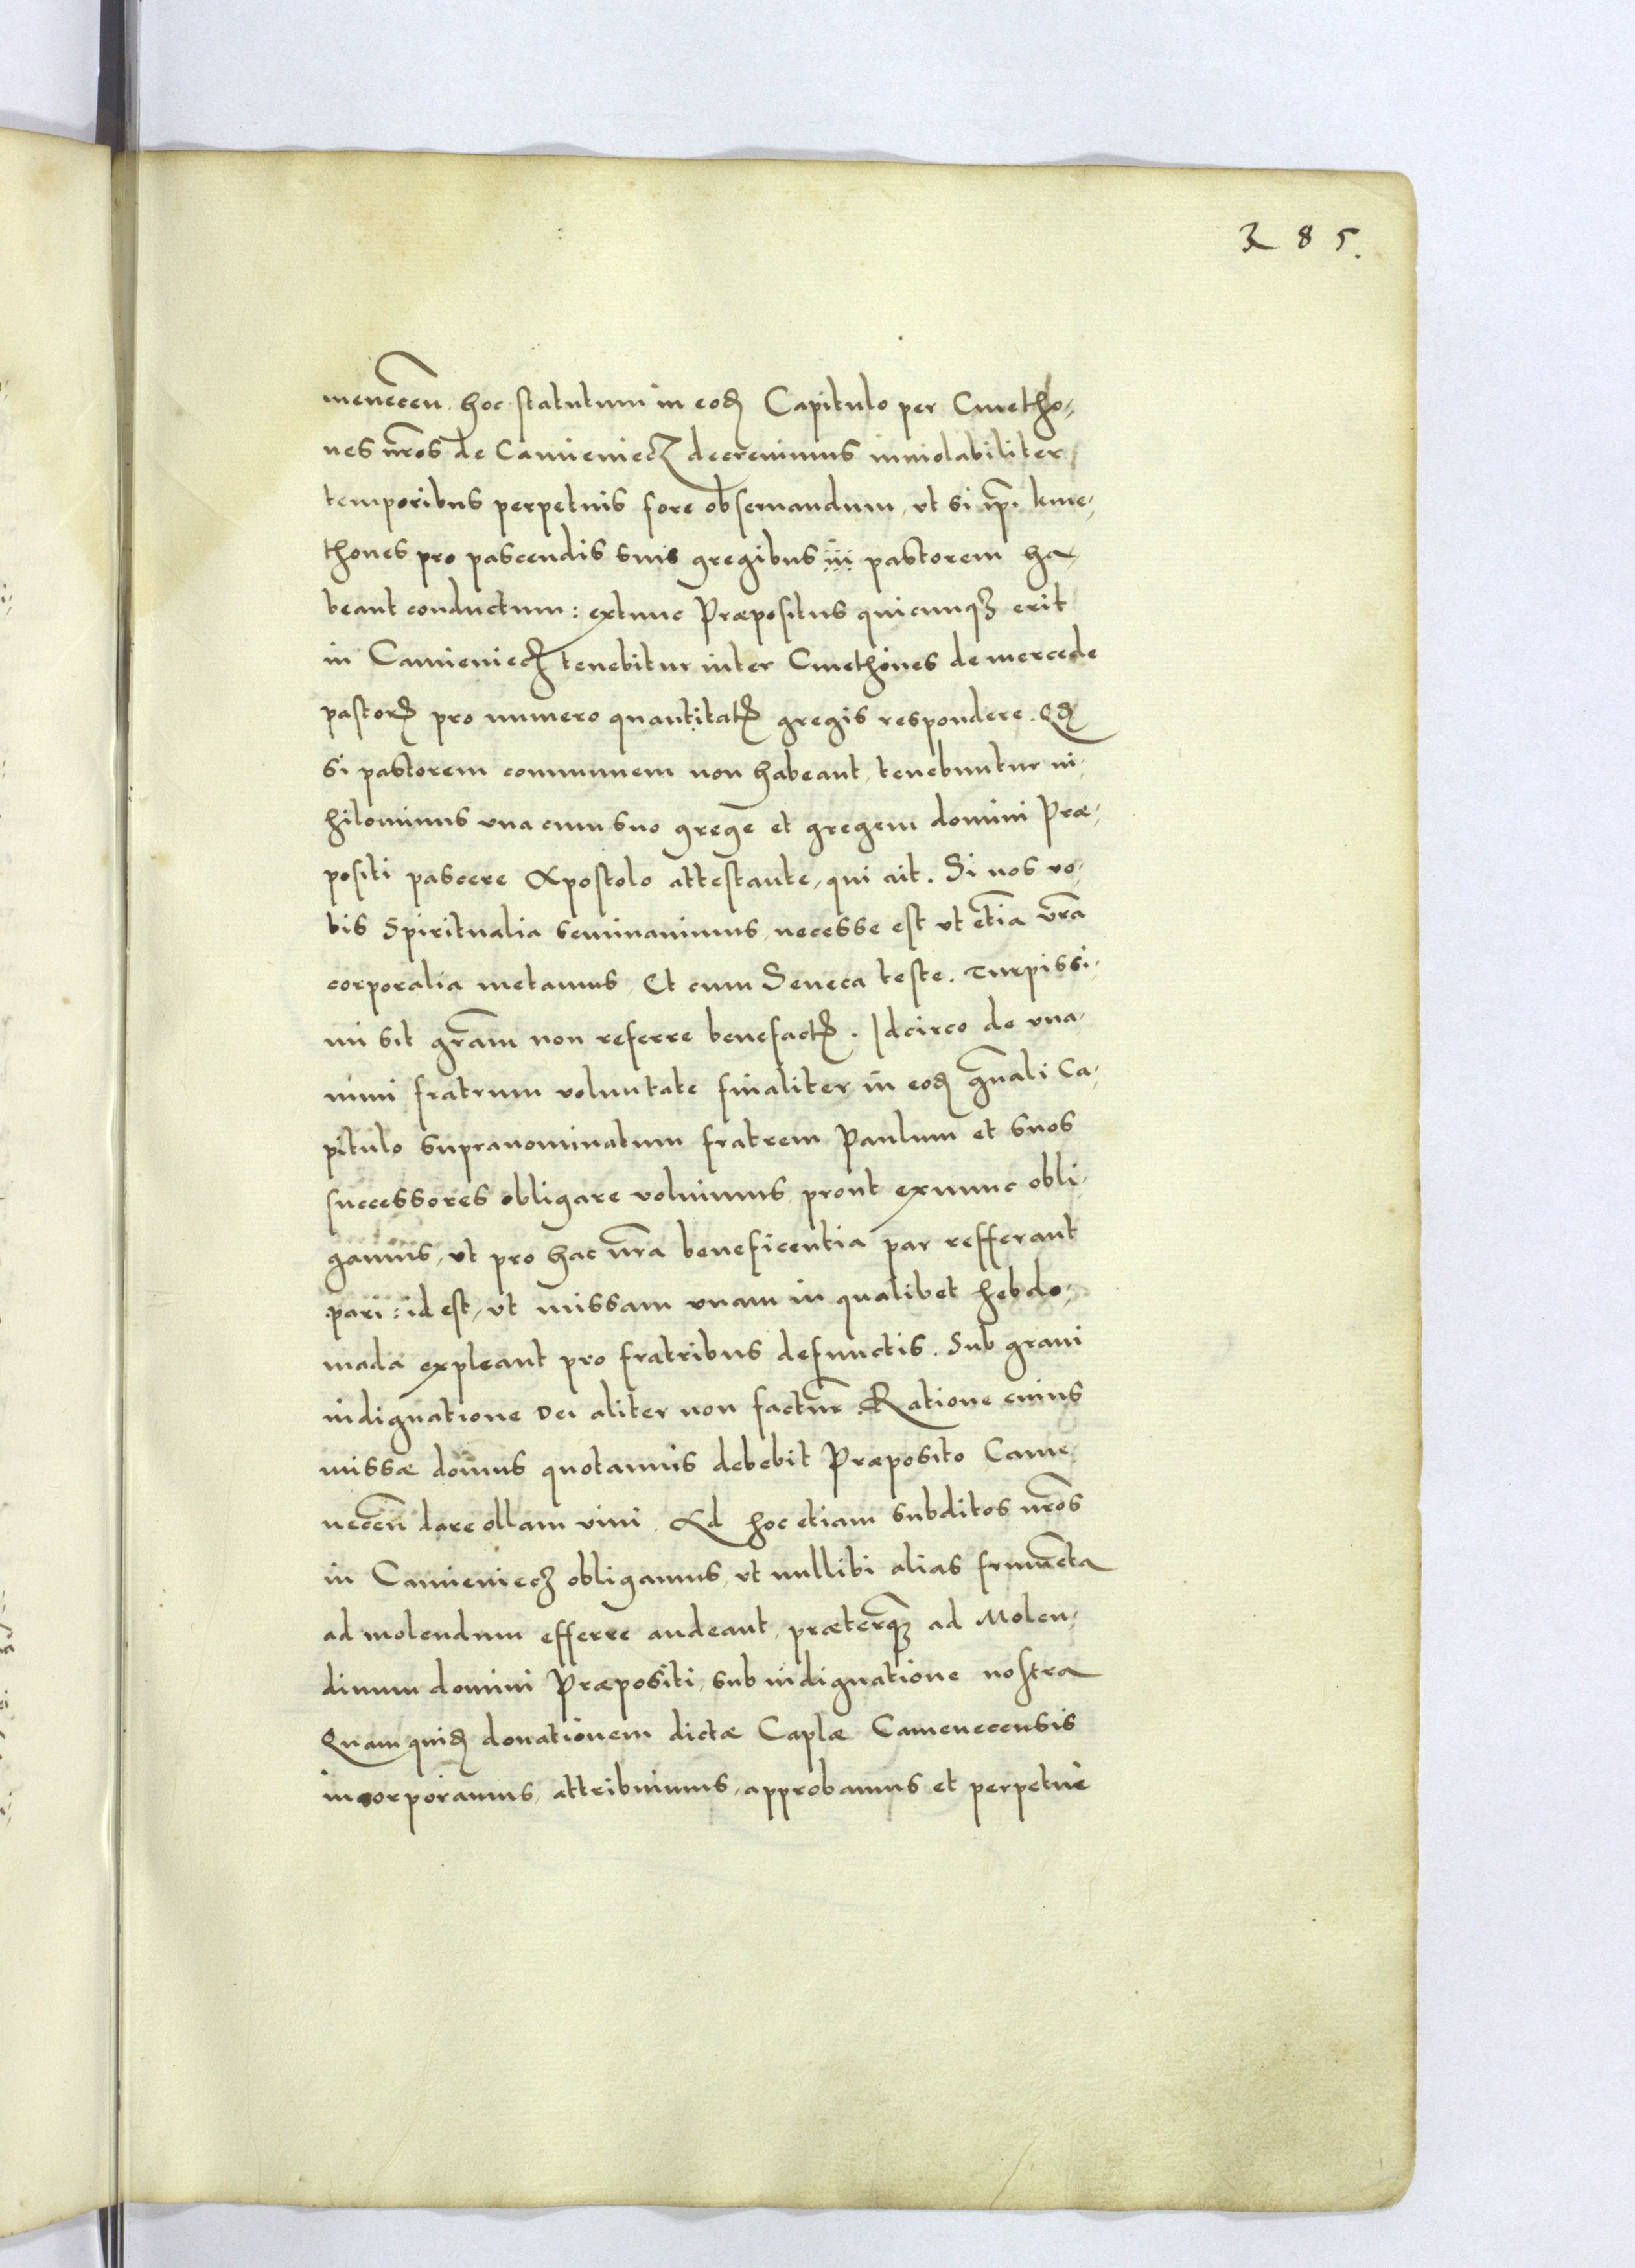 385.
menecen̄. hoc statutum in eod. Capitulo per Cmetho-
nes nr̄os de Camieniecz decreuimus inuiolabiliter
temporibus perpetuis fore obseruandum, vt si ip̄i kme-
thones pro pascendis suis gregibus pastorem ha-
beant conductum: extunc Præpositus quicunqȝ erit
in Camieniecz tenebitur inter Cmethones de mercede
pastorꝭ pro numero quantitatꝭ gregis respondere. Qd
si pastorem communem non habeant, tenebuntur ni-
hilominus vna cum suo gregē et gregem domini Præ-
positi pascere Apostolo attestante, qui ait. Si nos vo-
bis Spiritualia seminauimus, necesse est vt etiā vr̄a
corporalia metamus, Et cum Seneca teste. Turpissi-
mi sit gr̄am non referre benefactꝭ. Idcirco de vna-
nimi fratrum voluntate finaliter in eod. gn̄ali Ca-
pitulo supranominatum fratrem Paulum et suos
successores obligare voluimus, prout exnunc obli-
gamus, vt pro hac nr̄a beneficentia par refferant
pari: id est, vt missam vnam in qualibet hebdo-
mada expleant pro fratribus defunctis. Sub graui
indignatione Dei aliter non factur̄. Ratione cuius
missæ domus quotannis debebit Præposito Came-
necen̄ dare ollam vini. Ad hoc etiam subditos nr̄os
in Camieniecz obligamus, vt nullibi alias frumēta
ad molendum efferre audeant, præterqȝ ad Molen-
dinum domini Præpositi, sub indignatione nostra
Quam quid. donationem dictæ Caplæ Camenecensis
incorporamus, attribuimus, approbamus et perpetue